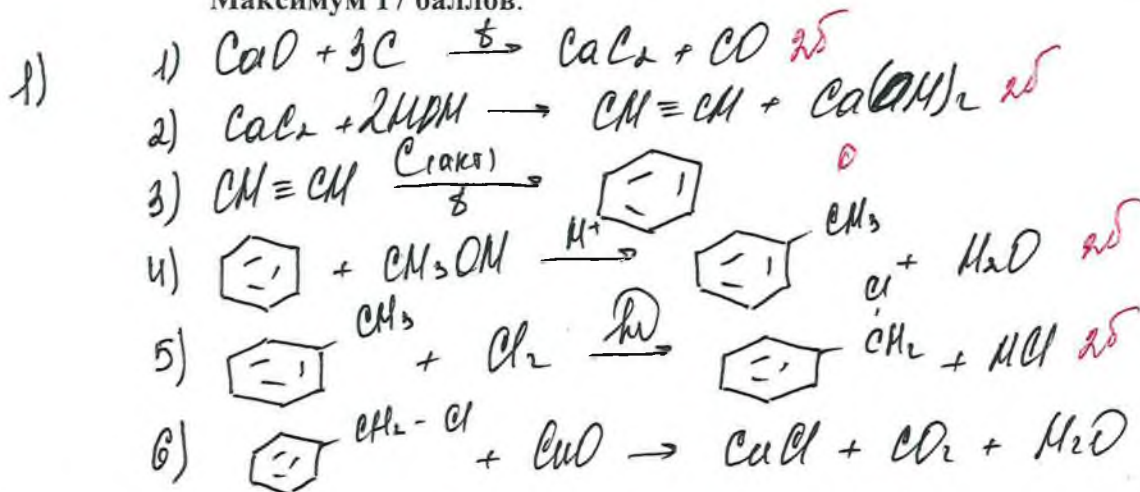 Максимум 17 баллов.
1) 1) CaO + 3C t→ CaC2 + CO 2б
2) CaC2 + 2HOH → CH≡CH + Ca(OH)2 2б
3) CH≡CH C(акт) t→ 0
4) + CH3OH H+→ CH3 + H2O 2б
5) CH3 + Cl2 hν→ Cl CH2 + HCl 2б
6) CH2 - Cl + CuO → CuCl + CO2 + H2O